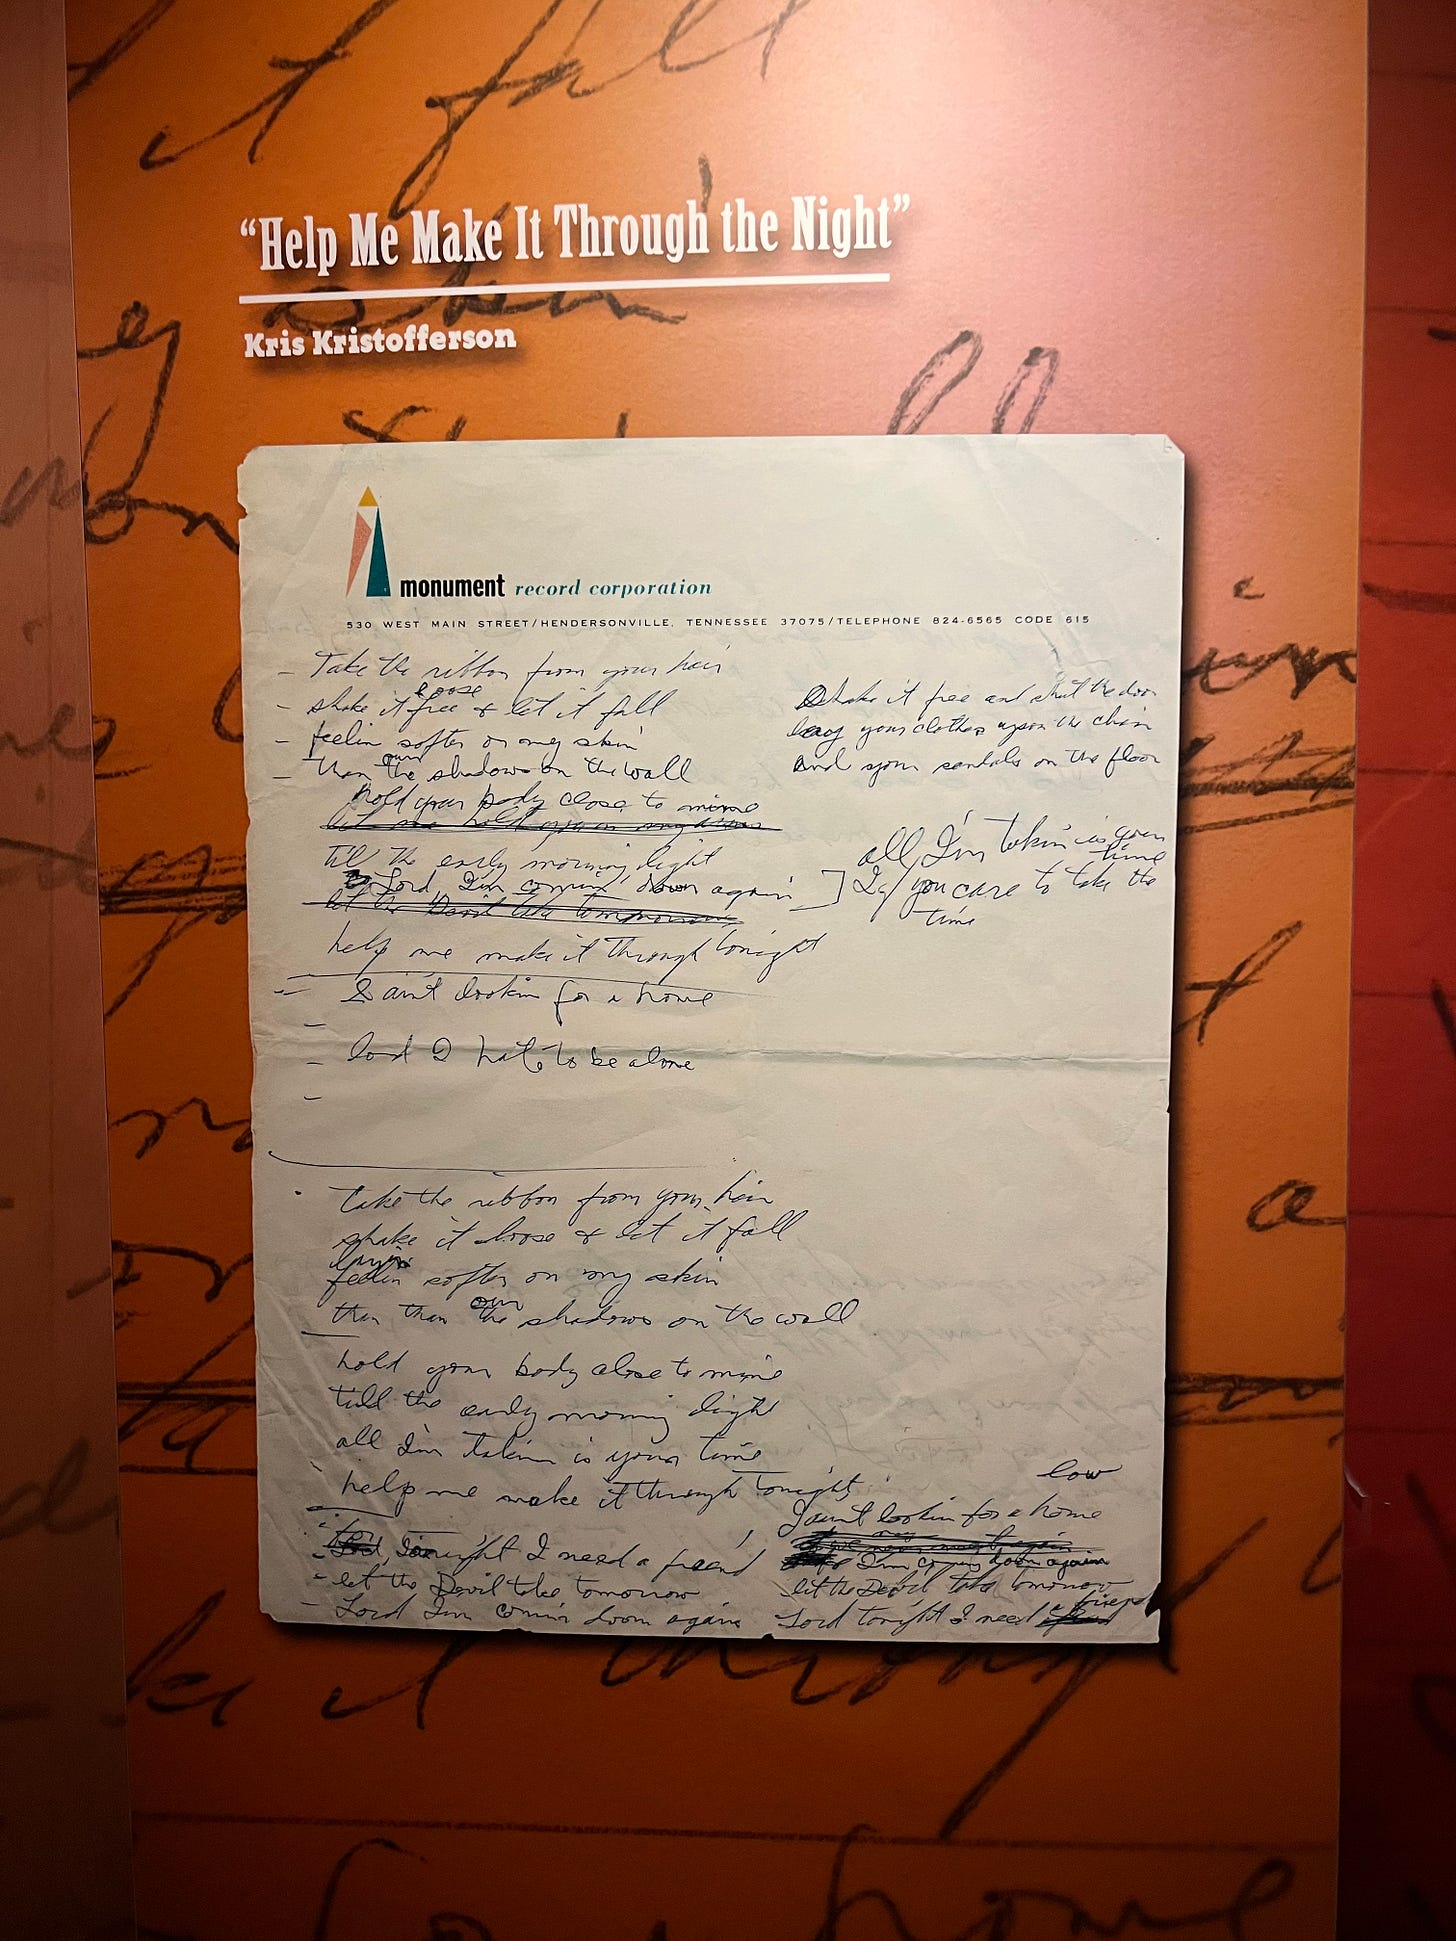 “Help Me Make It Through the Night”
Kris Kristofferson
monument record corporation
530 WEST MAIN STREET/HENDERSONVILLE, TENNESSEE 37075/TELEPHONE 824-6565 CODE 615
– Take the ribbon from your hair
loose
– shake it free & let it fall
– feelin softer on my skin
our
– than the shadows on the wall
hold your body close to mine
let me hold you in my arms
til the early morning light
Lord, I'm comin' down again
let the Devil take tomorrow
help me make it through tonight
– I aint lookin for a home
–
– lord I hate to be alone
–
shake it free and shut the door
lay your clothes upon the chair
and your sandals on the floor
all I'm takin' is your
time
If you care to take the
time
take the ribbon from your hair
shake it loose & let it fall
layin
feelin softer on my skin
our
than than the shadows on the wall
hold your body close to mine
till the early morning light
all I'm takin is your time
help me make it through tonight
Lord, tonight I need a friend
– let the Devil take tomorrow
– Lord I'm comin down again
low
I aint lookin for a home
I'm comin down again
let the Devil take tomorrow
Lord tonight I need a